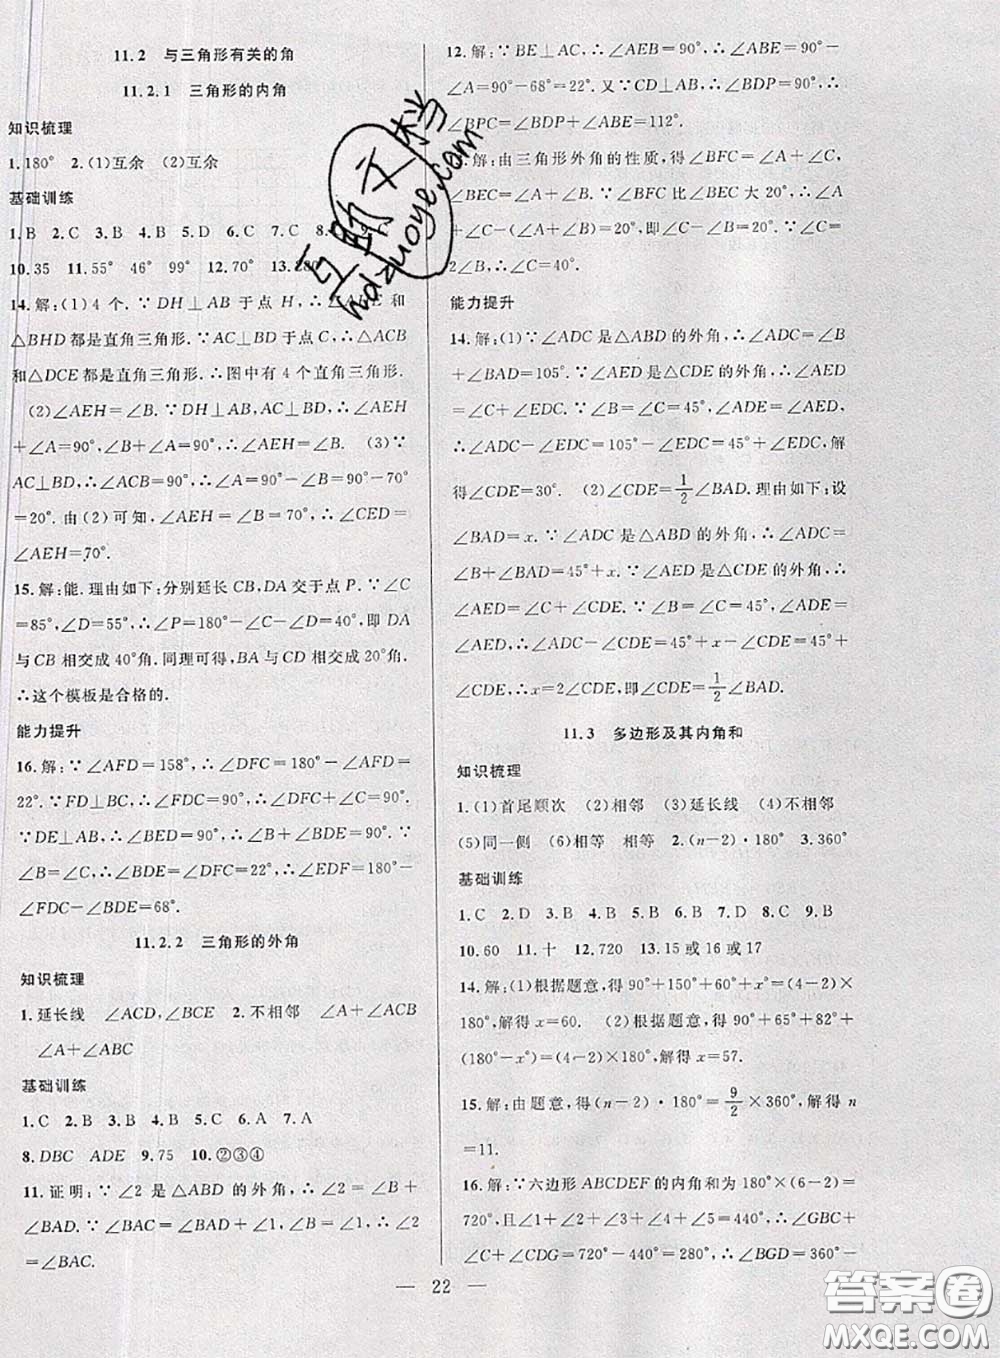 11.2 与三角形有关的角
11.2.1 三角形的内角
知识梳理
1.180° 2.(1)互余 (2)互余
基础训练
1.B 2.C 3.B 4.B 5.D 6.C 7.C 8.C 9.
10.35 11.55° 46° 99° 12.70° 13.280
14.解:(1)4个.∵DH⊥AB于点H,∴△AHE和
△BHD都是直角三角形.∵AC⊥BD于点C,∴△ACB
和△DCE都是直角三角形.∴图中有4个直角三角形.
(2)∠AEH=∠B.∵DH⊥AB,AC⊥BD,∴∠AEH
+∠A=90°,∠B+∠A=90°.∴∠AEH=∠B. (3)∵
AC⊥BD,∴∠ACB=90°,∴∠A=90°-∠B=90°-70°
=20°.由(2)可知,∠AEH=∠B=70°,∴∠CED=
∠AEH=70°.
15.解:能.理由如下:分别延长CB,DA交于点P.∵∠C
=85°,∠D=55°,∴∠P=180°-∠C-∠D=40°,即DA
与CB相交成40°角.同理可得,BA与CD相交成20°角.
∴这个模板是合格的.
能力提升
16.解:∵∠AFD=158°,∴∠DFC=180°-∠AFD=
22°.∵FD⊥BC,∴∠FDC=90°,∴∠C+∠DFC=90°.
∵DE⊥AB,∴∠BED=90°,∴∠B+∠BDE=90°.∵
∠B=∠C,∴∠BDE=∠DFC=22°,∴∠EDF=180°-
∠FDC-∠BDE=68°.
11.2.2 三角形的外角
知识梳理
1.延长线 ∠ACD,∠BCE 2.不相邻 ∠A+∠ACB
∠A+∠ABC
基础训练
1.C 2.B 3.B 4.B 5.C 6.A 7.A
8.DBC ADE 9.75 10.②③④
11.证明:∵∠2是△ABD的外角,∴∠2=∠B+
∠BAD.∵∠BAC=∠BAD+∠1,∠B=∠1,∴∠2
=∠BAC.
12.解:∵BE⊥AC,∴∠AEB=90°,∴∠ABE=90°-
∠A=90°-68°=22°.又∵CD⊥AB,∴∠BDP=90°,∴
∠BPC=∠BDP+∠ABE=112°.
解:由三角形外角的性质,得∠BFC=∠A+∠C,
∠BEC=∠A+∠B.∵∠BFC比∠BEC大20°,∴∠A
+∠C-(∠A+∠B)=20°,即∠C-∠B=20°.∵∠C=
2∠B,∴∠C=40°.
能力提升
14.解:(1)∵∠ADC是△ABD的外角,∴∠ADC=∠B
+∠BAD=105°.∵∠AED是△CDE的外角,∴∠AED
=∠C+∠EDC.∵∠B=∠C=45°,∠ADE=∠AED,
∴∠ADC-∠EDC=105°-∠EDC=45°+∠EDC,解
得∠CDE=30°. (2)∠CDE=1/2∠BAD.理由如下:设
∠BAD=x.∵∠ADC是△ABD的外角,∴∠ADC=
∠B+∠BAD=45°+x.∵∠AED是△CDE的外角,∴
∠AED=∠C+∠CDE.∵∠B=∠C=45°,∠ADE=
∠AED,∴∠ADC-∠CDE=45°+x-∠CDE=45°+
∠CDE,∴x=2∠CDE,即∠CDE=1/2∠BAD.
11.3 多边形及其内角和
知识梳理
1.(1)首尾顺次 (2)相邻 (3)延长线 (4)不相邻
(5)同一侧 (6)相等 相等 2.(n-2)·180° 3.360°
基础训练
1.C 2.D 3.B 4.B 5.B 6.B 7.D 8.C 9.B
10.60 11.十 12.720 13.15或16或17
14.解:(1)根据题意,得90°+150°+60°+x°=(4-2)×
180°,解得x=60. (2)根据题意,得90°+65°+82°+
(180°-x°)=(4-2)×180°,解得x=57.
15.解:由题意,得(n-2)·180°=9/2×360°,解得n
=11.
16.解:∵六边形ABCDEF的内角和为180°×(6-2)=
720°,且∠1+∠2+∠3+∠4+∠5=440°,∴∠GBC+
∠C+∠CDG=720°-440°=280°,∴∠BGD=360°-
22
互助文档
hdzuoye.com
答案卷
MXQE.COM